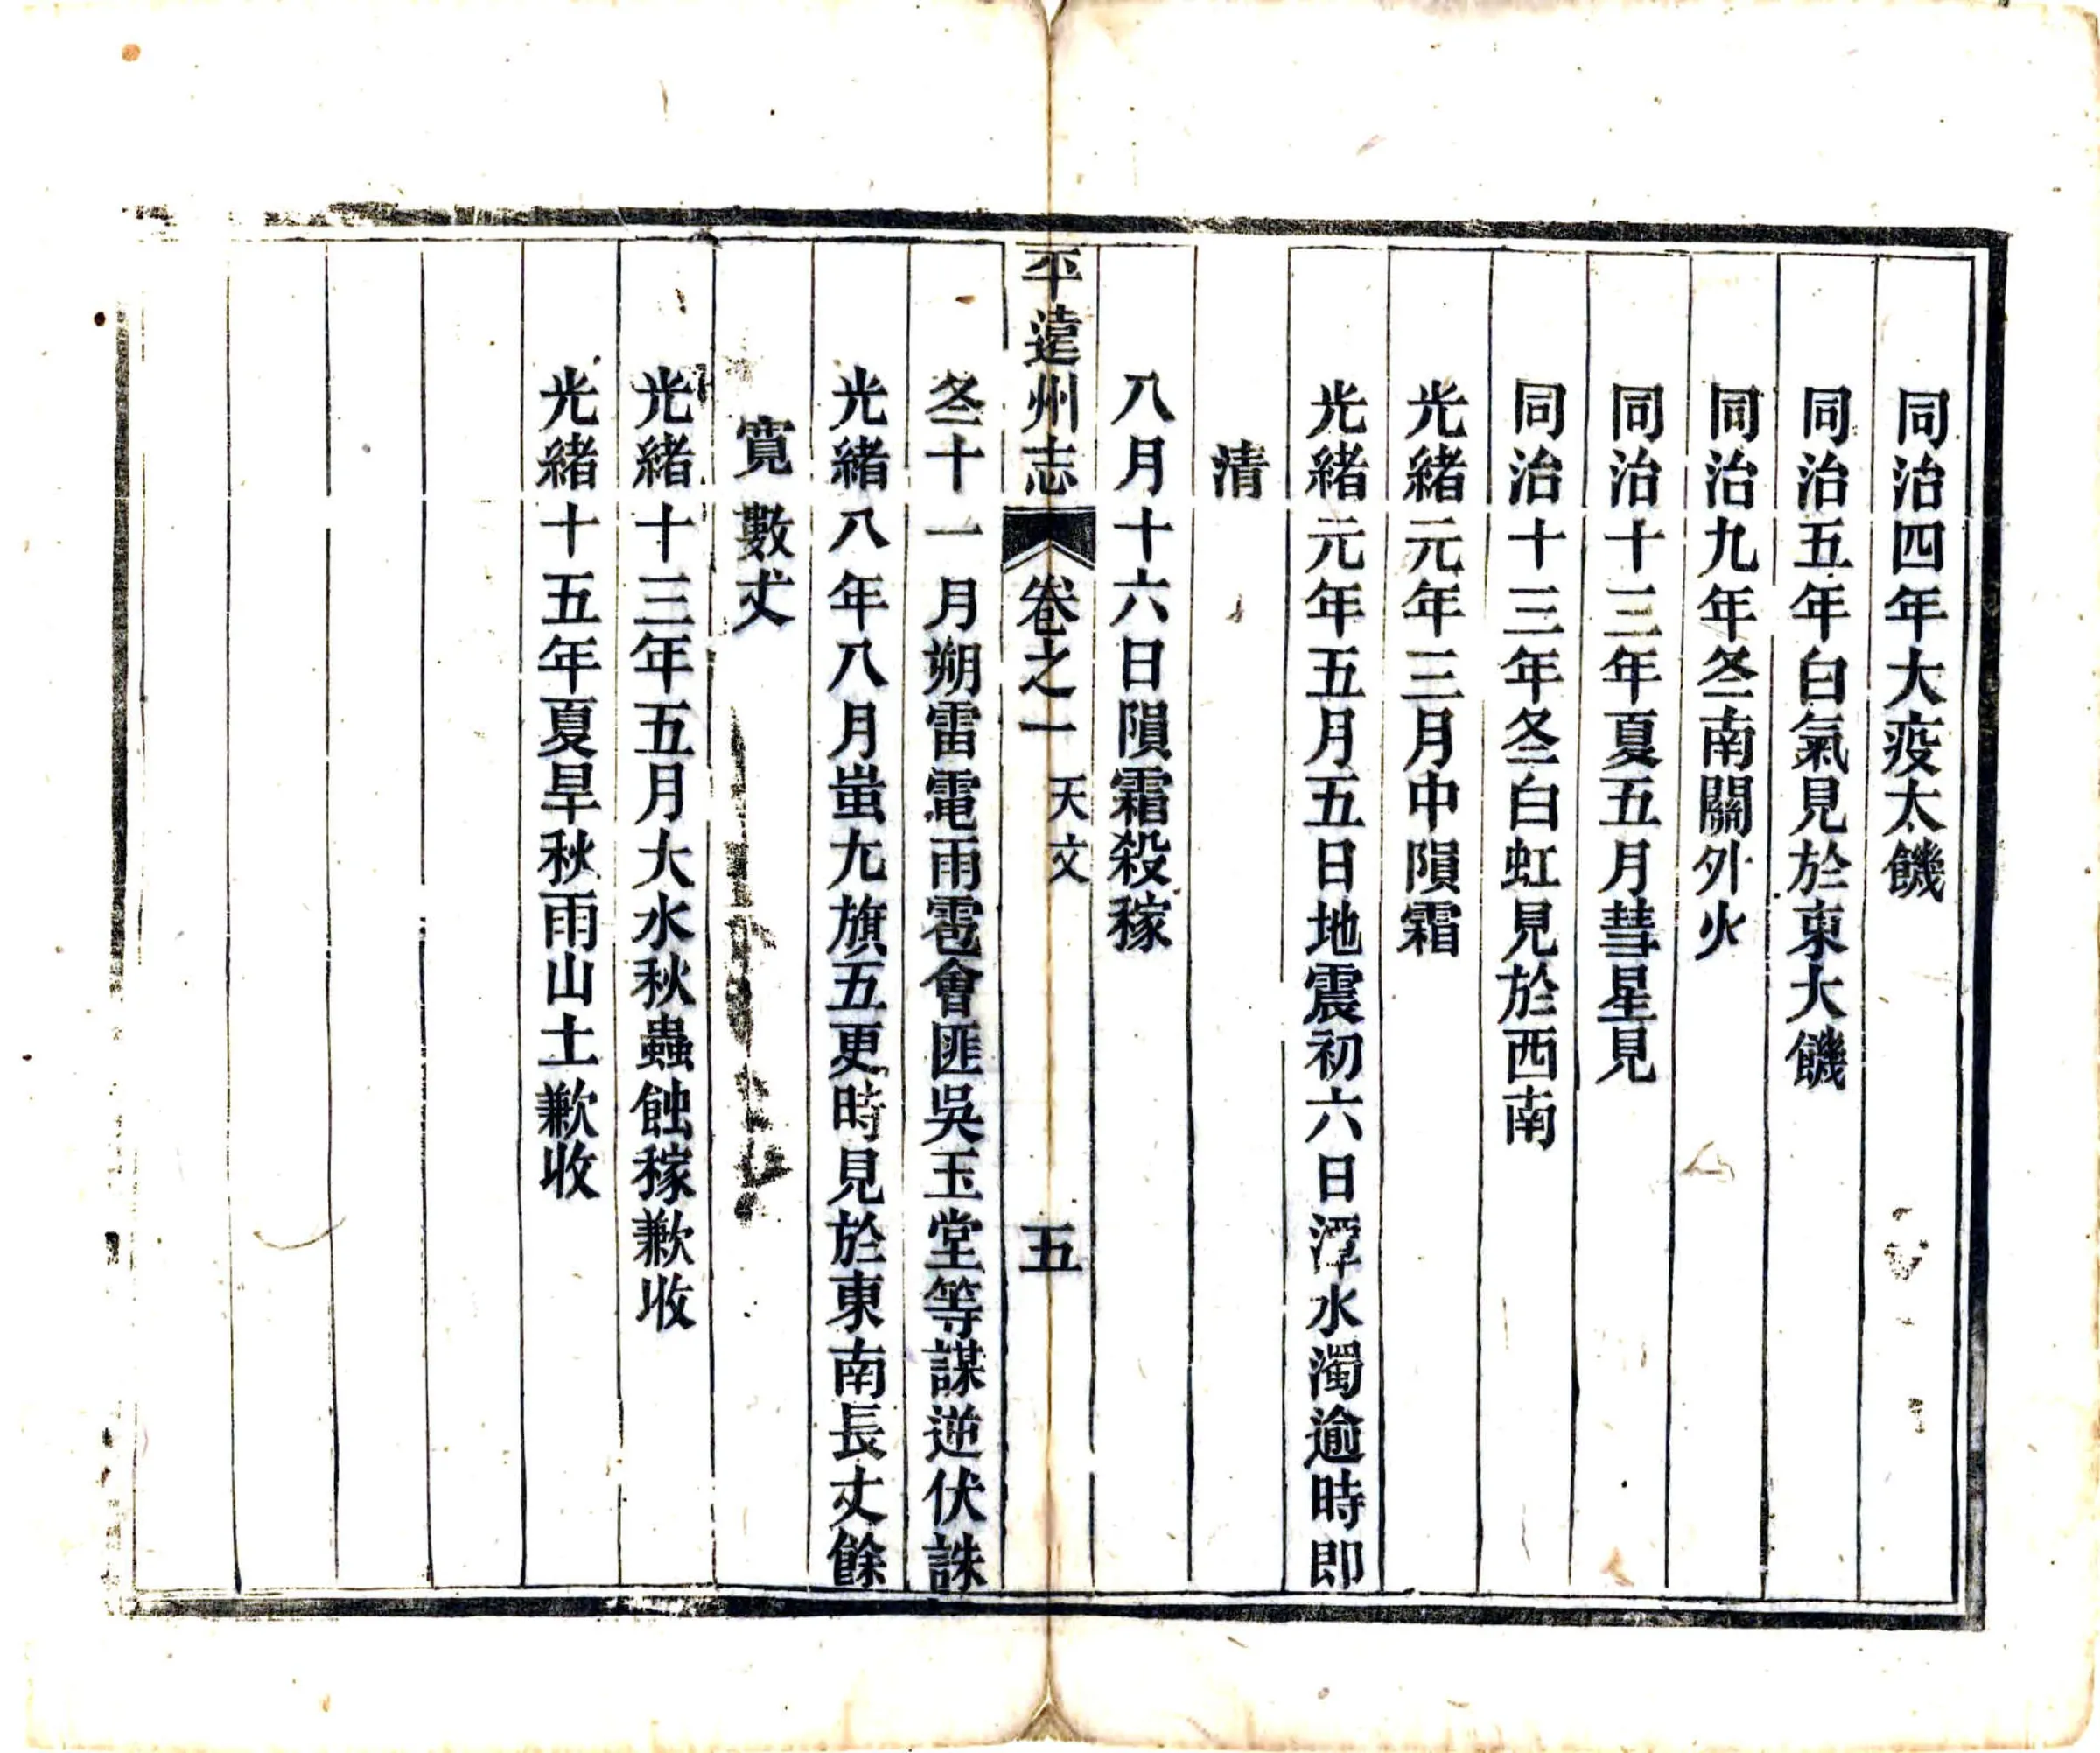 同治四年大疫太饑
同治五年白氣見於東大饑
同治九年冬南關外火
同治十三年夏五月彗星見
同治十三年冬白虹見於西南
光緒元年三月中隕霜
光緒元年五月五日地震初六日潭水濁逾時即
清
八月十六日隕霜殺稼
平遠州志
卷之一
天文
五
冬十一月朔雷電雨雹會匪吳玉堂等謀逆伏誅
光緒八年八月蚩尤旗五更時見於東南長丈餘
寬數丈
光緒十三年五月大水秋蟲蝕稼歉收
光緒十五年夏旱秋雨山土歉收